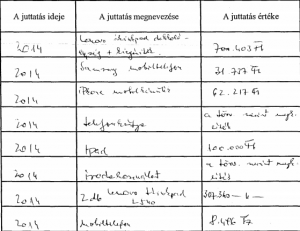 A juttatás ideje A juttatás megnevezése A juttatás értéke
2014 Lenovo thinkpad
egység + kiegészítők 700.403 Ft
2014 Samsung mobiltelefon 31.727 Ft
2014 iPhone mobilkészülék 62.217 Ft
2014 telefonkártya a törv. szerint megh.
2014 Ipad 100.000 Ft
2014 Irodahasználat a törv. szerint megh.
2014 2 db Lenovo thinkpad
L540 307.360 - u -
2014 mobiltelefon 8.496 Ft